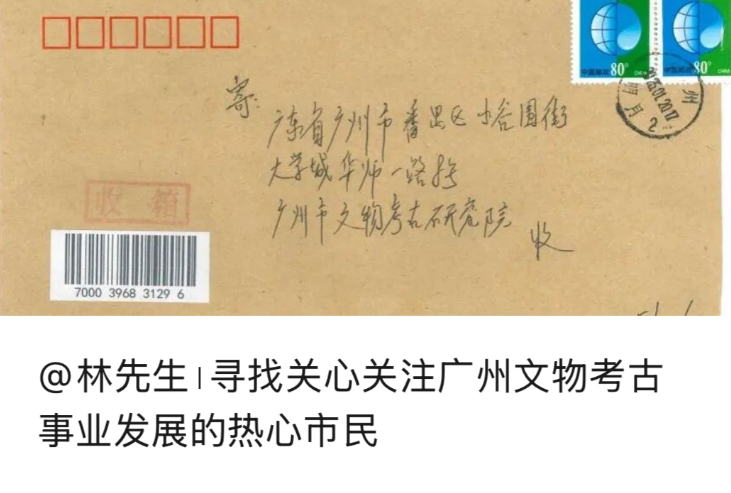 中国邮政 80分 CHINA
中国邮政 80分 CHINA
寄:
广东省广州市番禺区小谷围街
大学城华师一路2号
广州市文物考古研究院 收
收 箱
7000 3968 3129 6
@林先生|寻找关心关注广州文物考古
事业发展的热心市民